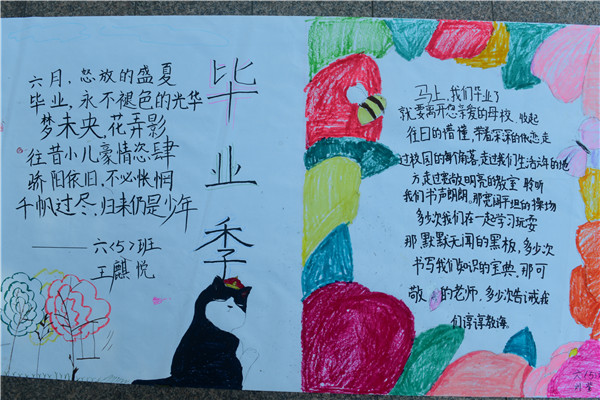 六月，怒放的盛夏
毕业，永不褪色的光华
梦未央，花弄影
往昔小儿豪情恣肆
骄阳依旧，不必怅惘
千帆过尽，归来仍是少年
——六〈5〉班
王麒悦
毕业季
马上，我们毕业了
就要离开您亲爱的母校，收起
往日的懵懂，带着深深的依恋走
过校园的每个角落，走过我们生活六年的地
方走过宽敞明亮的教室 聆听
我们书声朗朗。那宽阔平坦的操场
多少次我们在一起学习玩耍
那默默无闻的黑板，多少次
书写我们知识的宝典，那可
敬 的老师，多少次告诫我
们谆谆教诲。